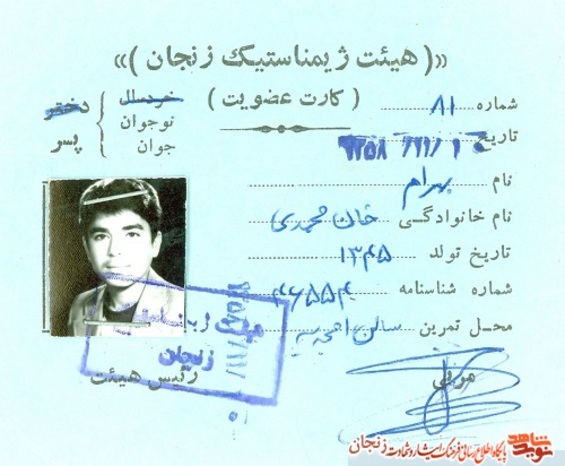 «( هیئت ژیمناستیک زنجان )»
( کارت عضویت )
شماره ۸۱
خردسال
نوجوان
جوان
دختر
پسر
تاریخ
نام بهرام
نام خانوادگی خان محمدی
تاریخ تولد ۱۳۴۵
شماره شناسنامه
محل تمرین سالن امجدیه
مربی
رئیس هیئت
زنجان
نوید شاهد
پایگاه اطلاع رسانی فرهنگ ایثار و شهادت زنجان